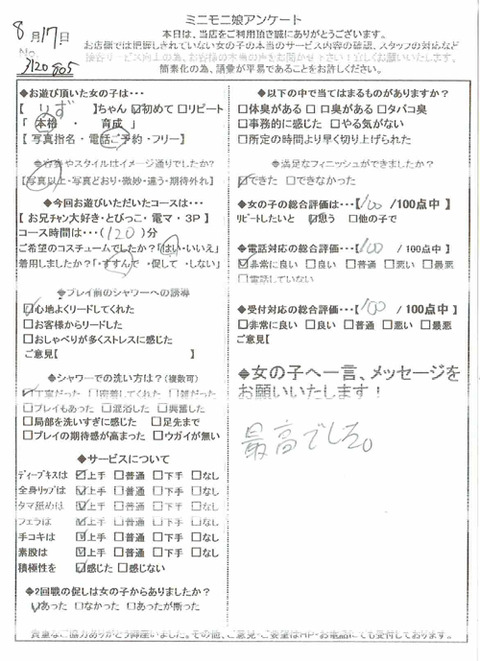 ミニモニ娘アンケート
8月17日
本日は、当店をご利用頂き誠にありがとうございます。
お店側では把握しきれていない女の子の本当のサービス内容の確認、スタッフの対応など
簡素化の為、語彙が平易であることをお許しください。
No.
3120 805
◆お遊び頂いた女の子は…
【 りず 】ちゃん ☑初めて □リピート
「 本格 ・ 育成 」
【写真指名・電話ご予約・フリー】
【写真以上・写真どおり・微妙・違う・期待外れ】
◆今回お遊びいただいたコースは…
【お兄チャン大好き・とびっこ・電マ・3P】
コース時間は…(120)分
ご希望のコスチュームでしたか？「はい・いいえ」
着用しましたか？「・すすんで・促して・しない」
◆プレイ前のシャワーへの誘導
☑心地よくリードしてくれた
□お客様からリードした
□おしゃべりが多くストレスに感じた
ご意見【 】
◆シャワーでの洗い方は？(複数可)
☑丁寧だった □密着してくれた □雑だった
□プレイもあった □混浴した □興奮した
□局部を洗いすぎに感じた □足先まで
□プレイの期待感が高まった □ウガイが無い
◆サービスについて
ディープキスは ☑上手 □普通 □下手 □なし
全身リップは ☑上手 □普通 □下手 □なし
タマ舐めは ☑上手 □普通 □下手 □なし
フェラは ☑上手 □普通 □下手 □なし
手コキは ☑上手 □普通 □下手 □なし
素股は ☑上手 □普通 □下手 □なし
積極性を ☑感じた □感じない
◆2回戦の促しは女の子からありましたか？
☑あった □なかった □あったが断った
◆以下の中で当てはまるものがありますか？
□体臭がある □口臭がある □タバコ臭
□事務的に感じた □やる気がない
□所定の時間より早く切り上げられた
◆満足なフィニッシュができましたか？
☑できた □できなかった
◆女の子の総合評価…【100/100点中】
リピートしたいと ☑思う □他の子で
◆電話対応の総合評価…【100/100点中】
☑非常に良い □良い □普通 □悪い □最悪
□電話していない
◆受付対応の総合評価…【100/100点中】
□非常に良い □良い □普通 □悪い □最悪
ご意見【 】
◆女の子へ一言、メッセージを
お願いいたします！
最高でした。
貴重なご協力ありがとう御座いました。その他、ご意見・ご要望はHP・お電話にても受付しております。